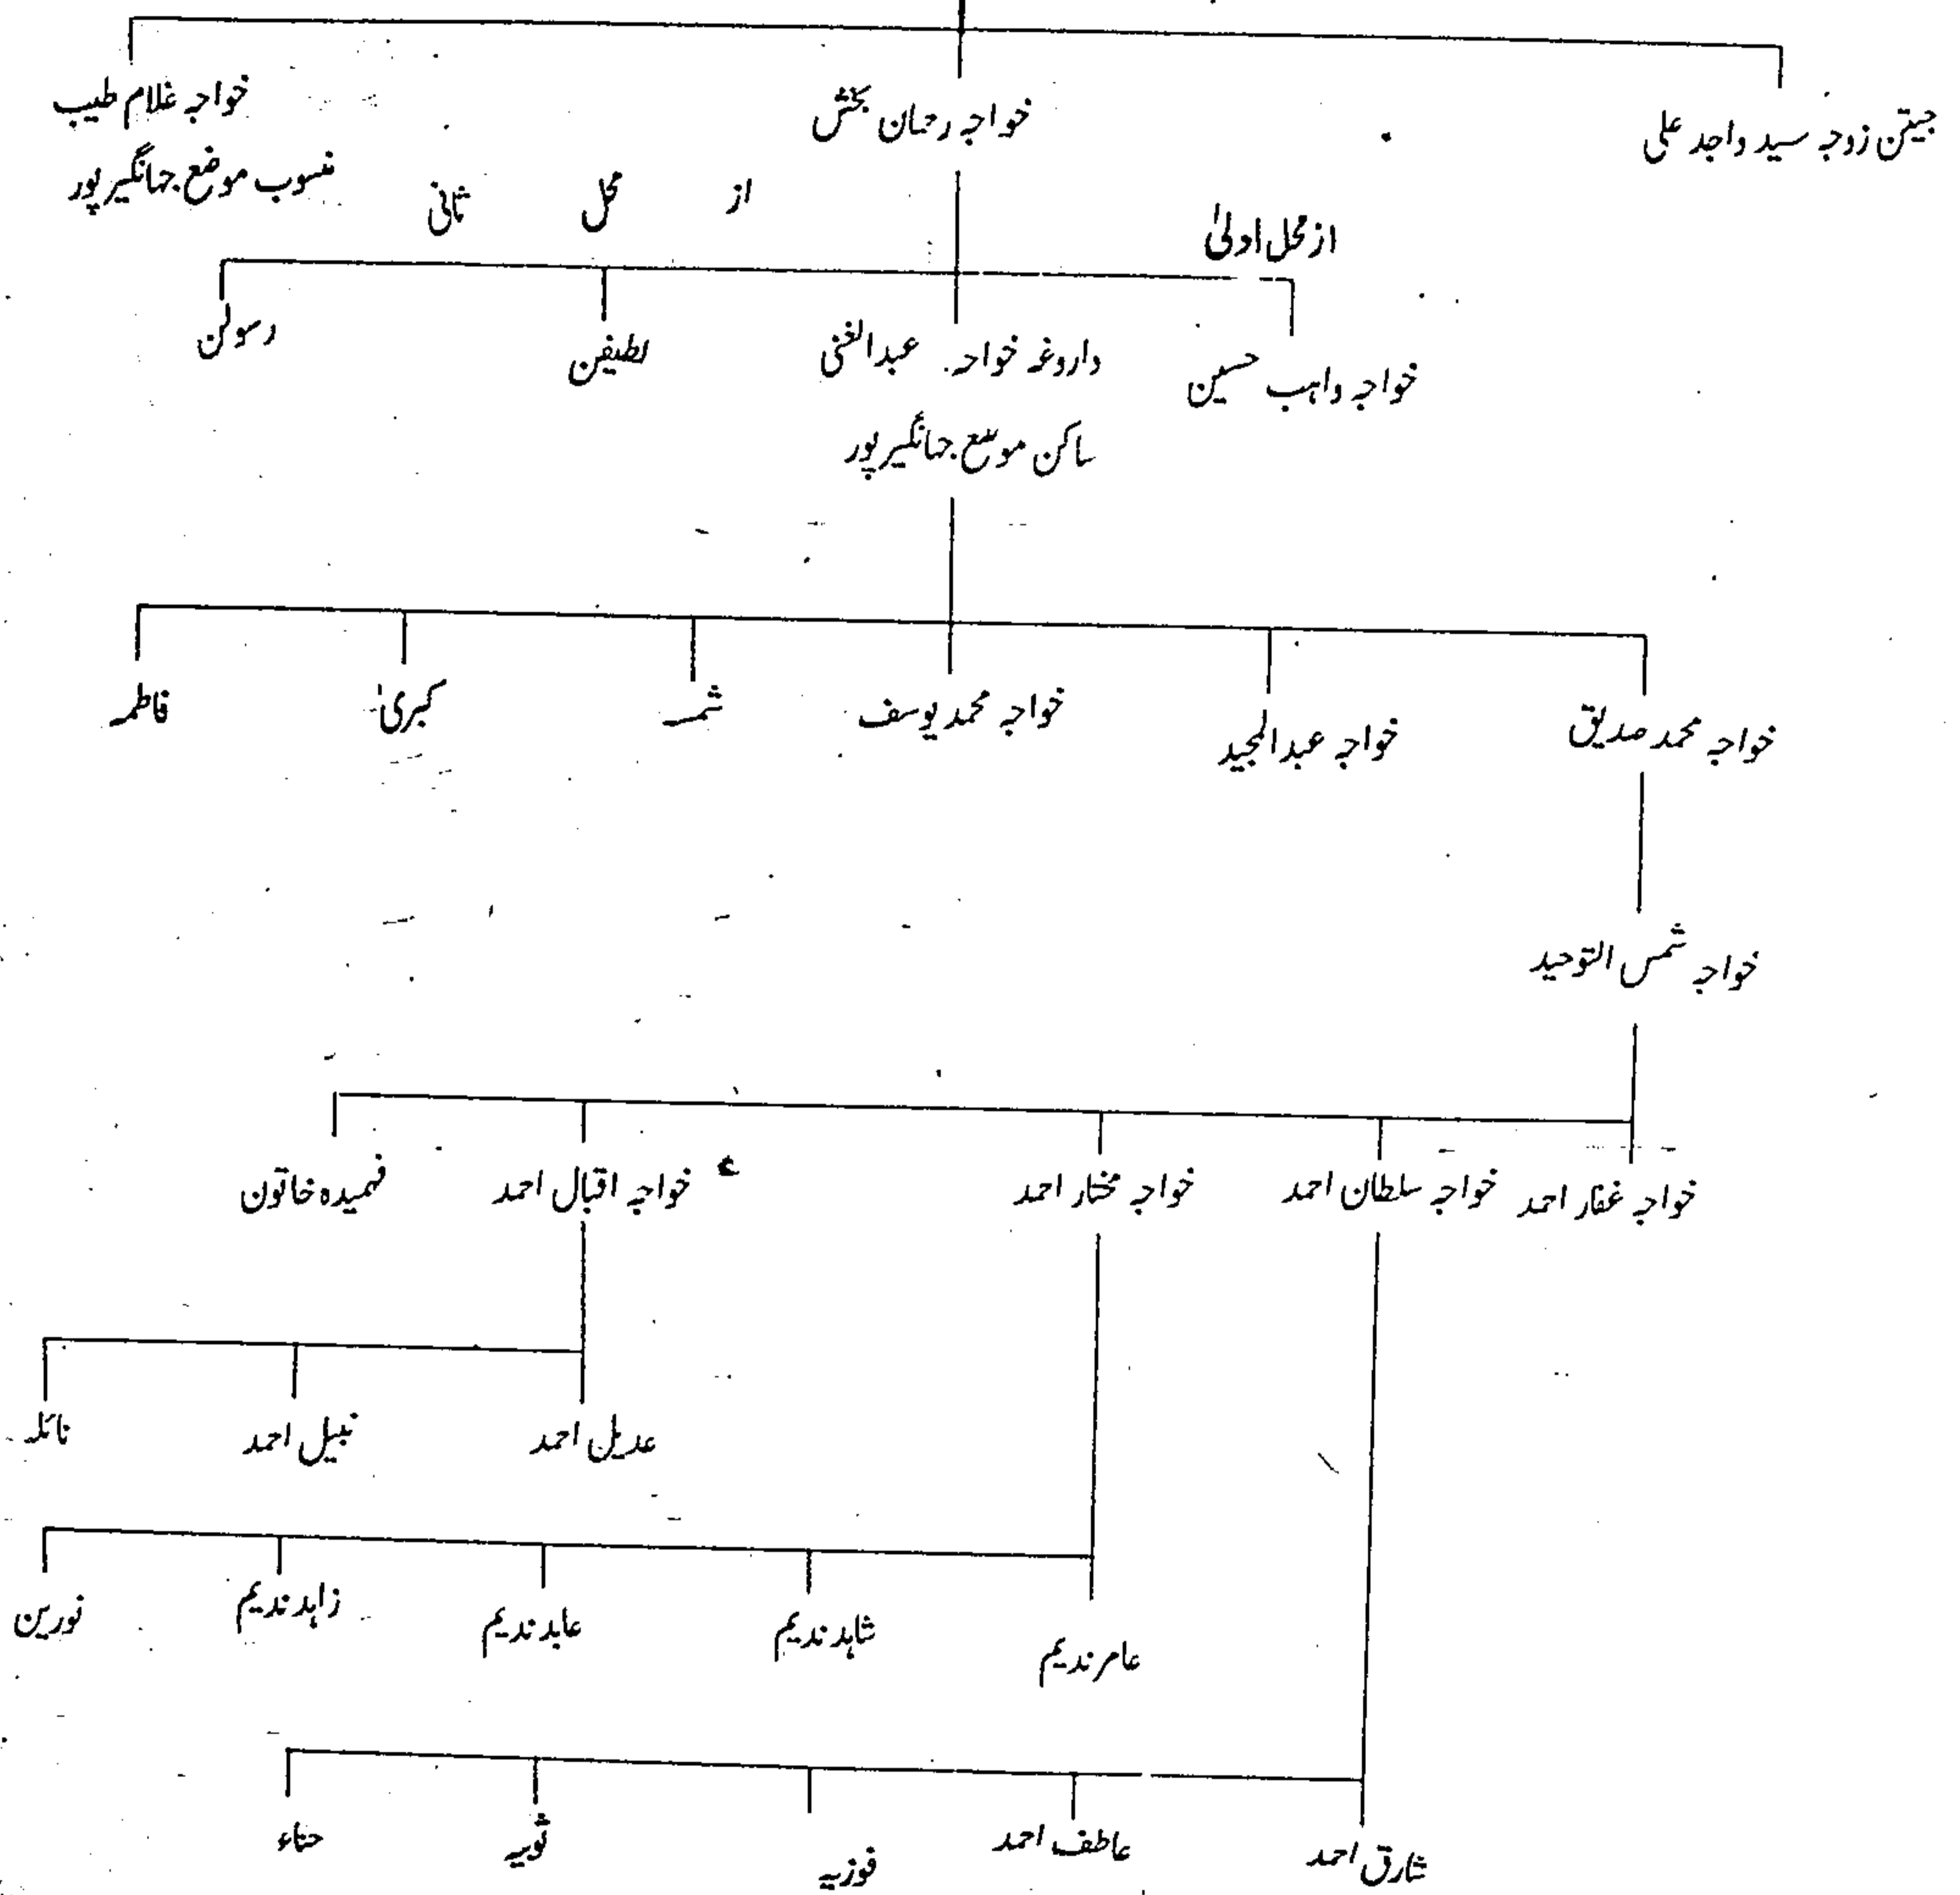 جیتن زوجہ سید واجد علی
خواجہ رحمان بخش
خواجہ غلام طیب
منسوب موضع جہانگیرپور
از محل اولیٰ
از محل ثانی
خواجہ واہب حسین
داروغہ خواجہ عبدالغنی
لطیفن
رسولن
ساکن موضع جہانگیرپور
خواجہ محمد صدیق
خواجہ عبدالمجید
خواجہ محمد یوسف
ثمر
کبریٰ
فاطمہ
خواجہ شمس التوحید
خواجہ غفار احمد
خواجہ سلطان احمد
خواجہ مختار احمد
خواجہ اقبال احمد
فہمیدہ خاتون
عدیل احمد
نبیل احمد
نائلہ
عامر ندیم
شاہد ندیم
عابد ندیم
زاہد ندیم
نورین
شارق احمد
عاطف احمد
فوزیہ
ثوبیہ
حناء